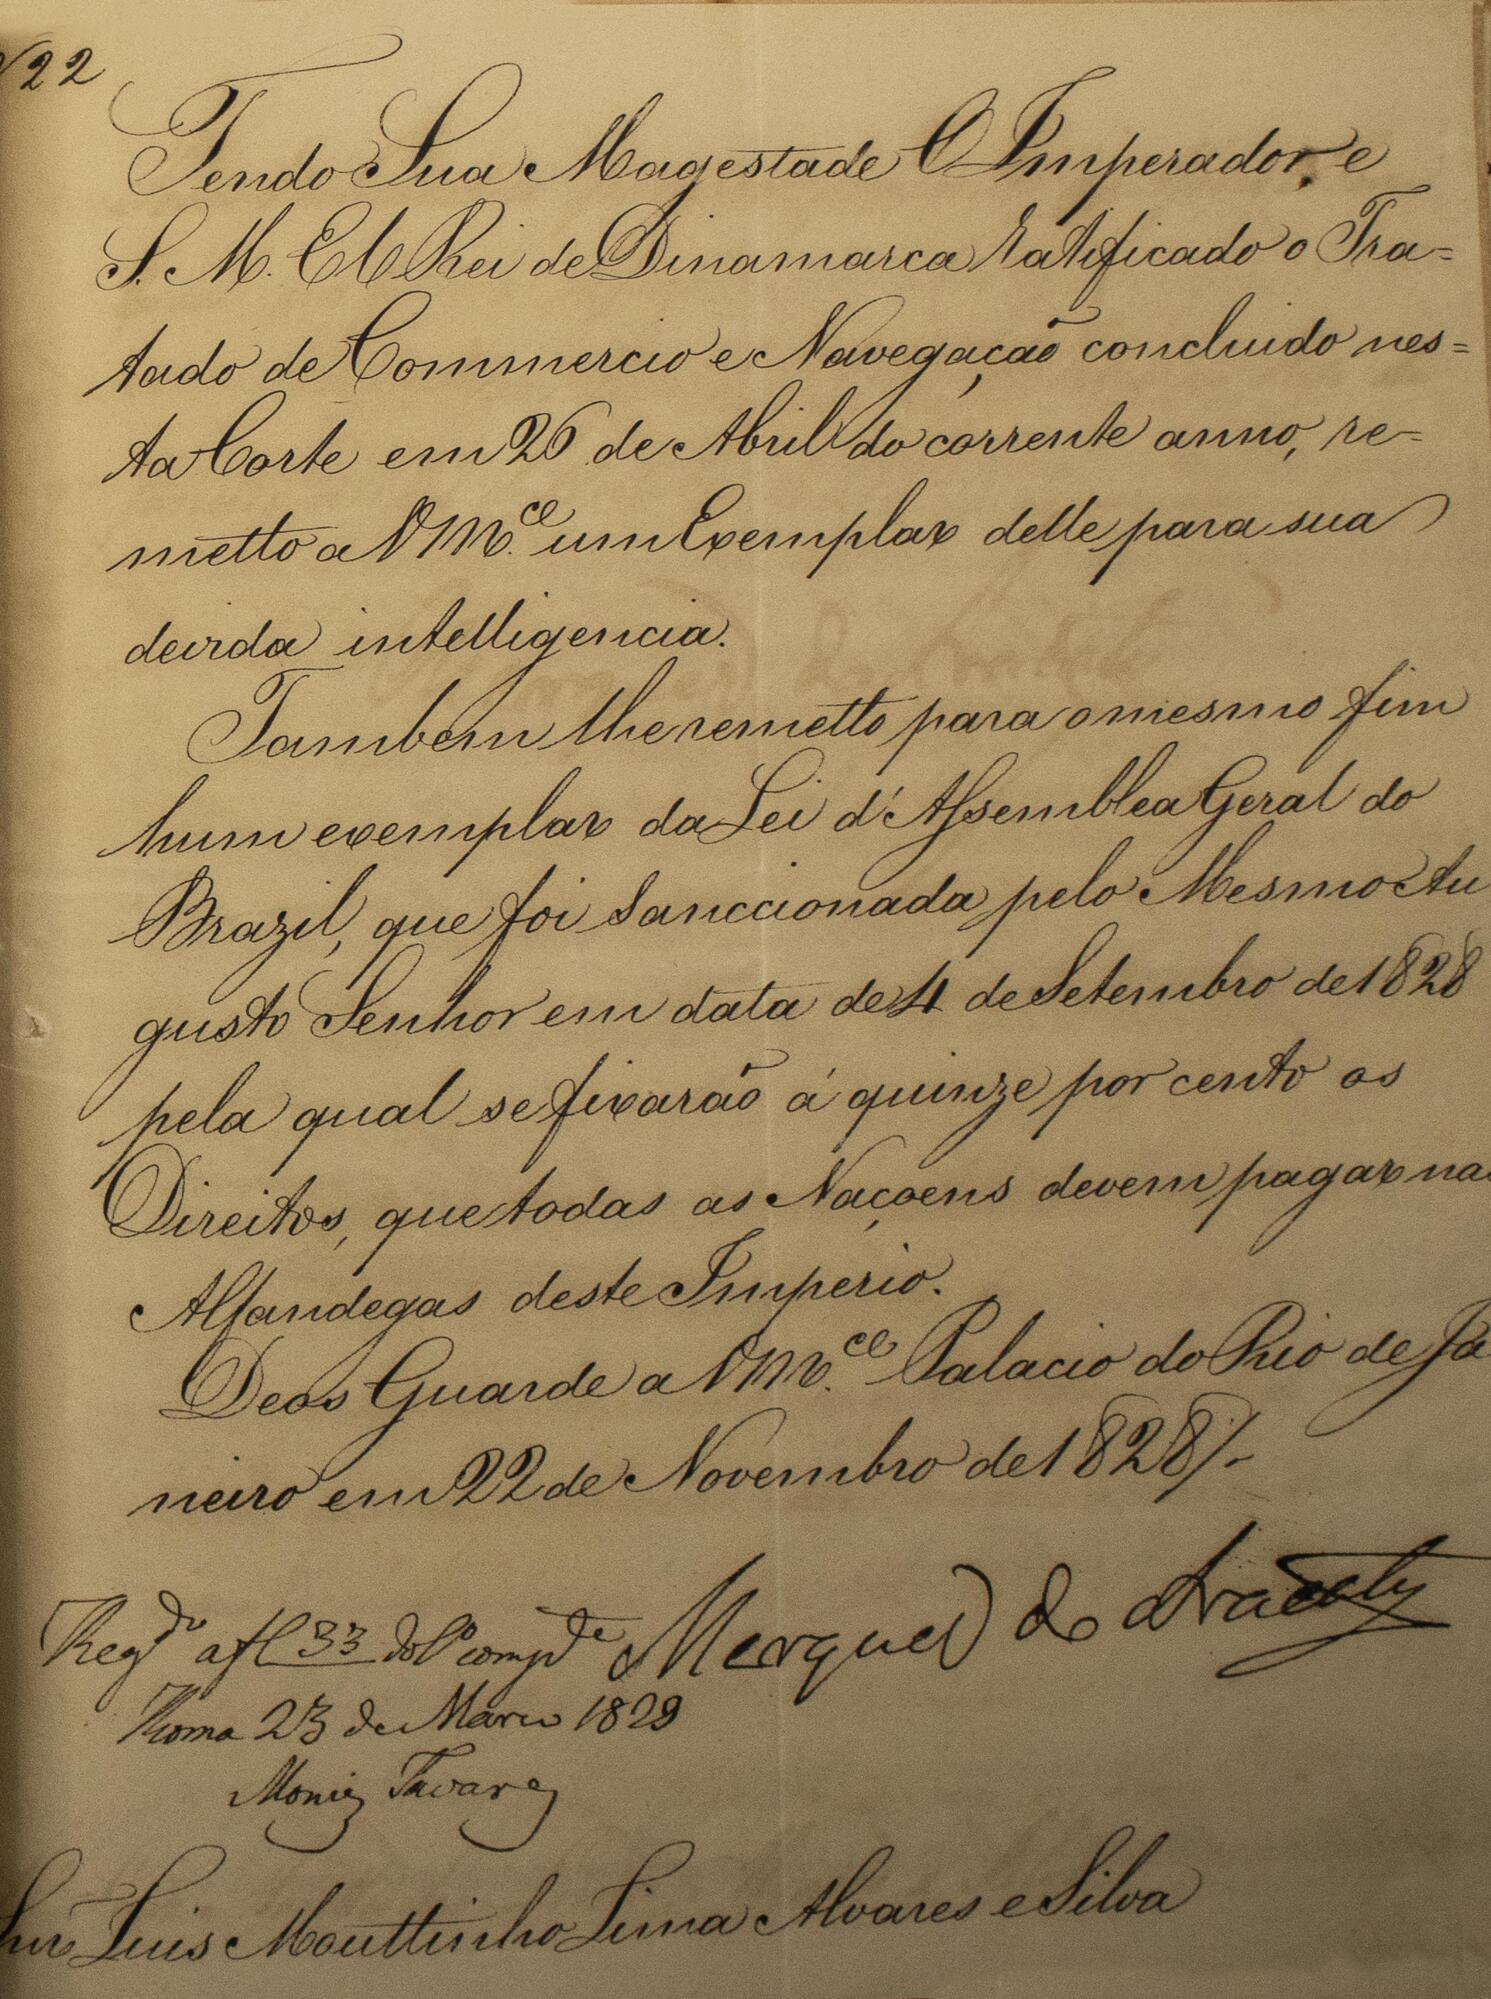 N 22
Tendo Sua Magestade O Imperador, e
S. M. El Rei de Dinamarca ratificado o Tra=
tado de Commercio e Navegação concluido nes=
ta Corte em 26 de Abril do corrente anno, re=
metto a V M.ce um Exemplar delle para sua
devida intelligencia.
Tambem lhe remetto para o mesmo fim
hum exemplar da Lei d'Assemblea Geral do
Brazil, que foi Sanccionada pelo Mesmo Au
gusto Senhor em data de 4 de Setembro de 1828
pela qual se fixarão á quinze por cento os
Direitos, que todas as Naçoens devem pagar nas
Alfandegas deste Imperio.
Deos Guarde a V M.ce Palacio do Rio de Ja
neiro em 22 de Novembro de 1828/-
Marquez de Aracaty
Reg.do a fl 33 do L.o comp.de
Roma 23 de Março 1829
Moniz Tavares
Snr Luis Mouttinho Lima Alvares e Silva